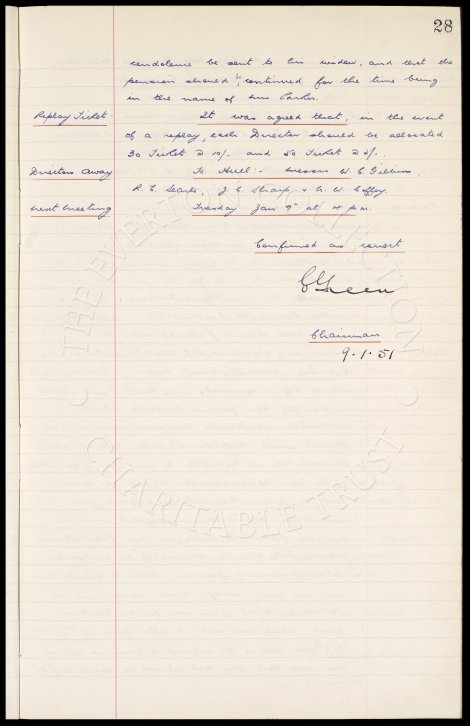 28
condolence be sent to his widow, and that the
pension should be continued for the time being
in the name of Mrs Parker.
Replay Tickets. It was agreed that, in the event
of a replay, each Director should be allocated
30 Tickets @ 10/- and 50 Tickets @ 2/-.
Directors away To Hull:- Messrs W. C. Gibbins
R. E. Searle, J. C. Sharp &
Next meeting Tuesday Jan 9th at 4 p.m.
Confirmed as correct
C Green
Chairman
9.1.51
THE EVERTON COLLECTION
CHARITABLE TRUST